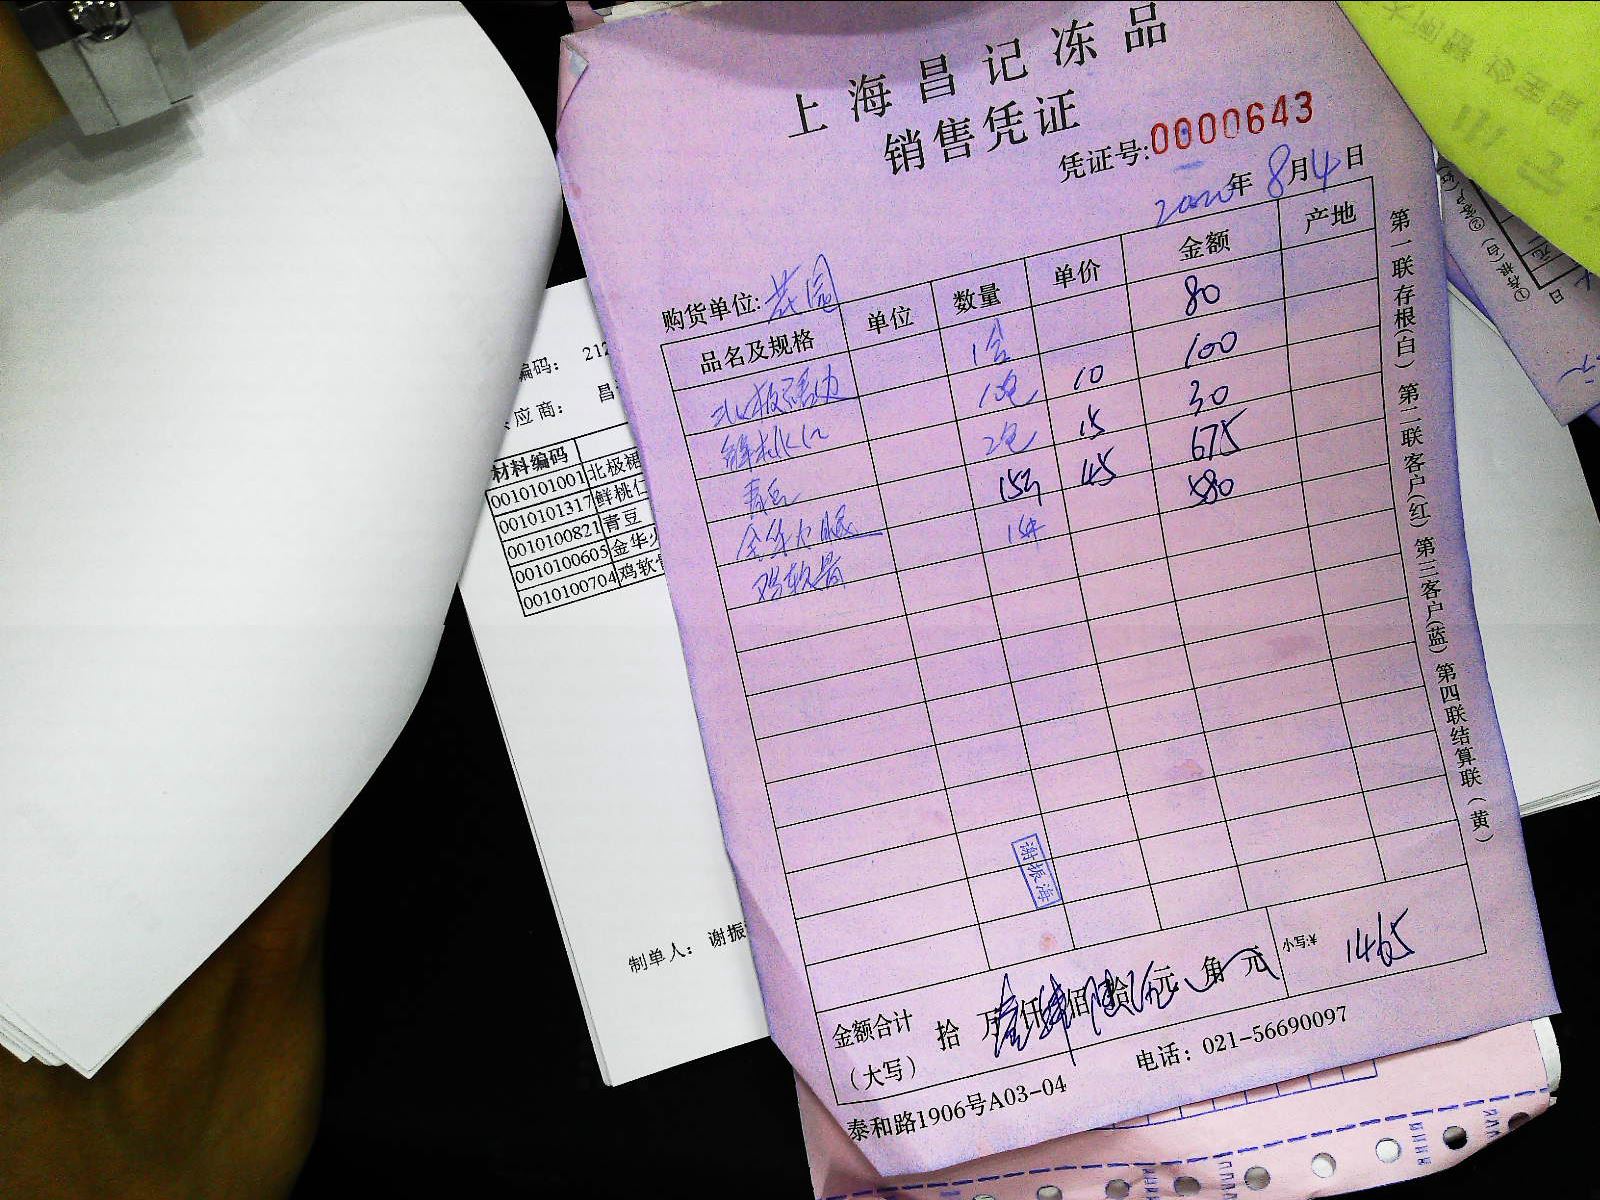 上海昌记冻品
销售凭证
凭证号:0000643
2020年8月4日
购货单位:花园
品名及规格 单位 数量 单价 金额 产地
北极裙边 1合 80
鲜桃仁 10包 10 100
青豆 2包 15 30
金华火腿 15斤 45 675
鸡软骨 1件 580
谢振海
金额合计(大写) 拾 万壹仟肆佰陆拾伍元 角 元 小写:¥ 1465
泰和路1906号A03-04 电话：021-56690097
第一联存根(白) 第二联客户(红) 第三客户(蓝) 第四联结算联(黄)
编码： 212
应商： 昌
材料编码
0010101001 北极裙
0010101317 鲜桃仁
0010100821 青豆
0010100605 金华火
0010100704 鸡软骨
制单人： 谢振